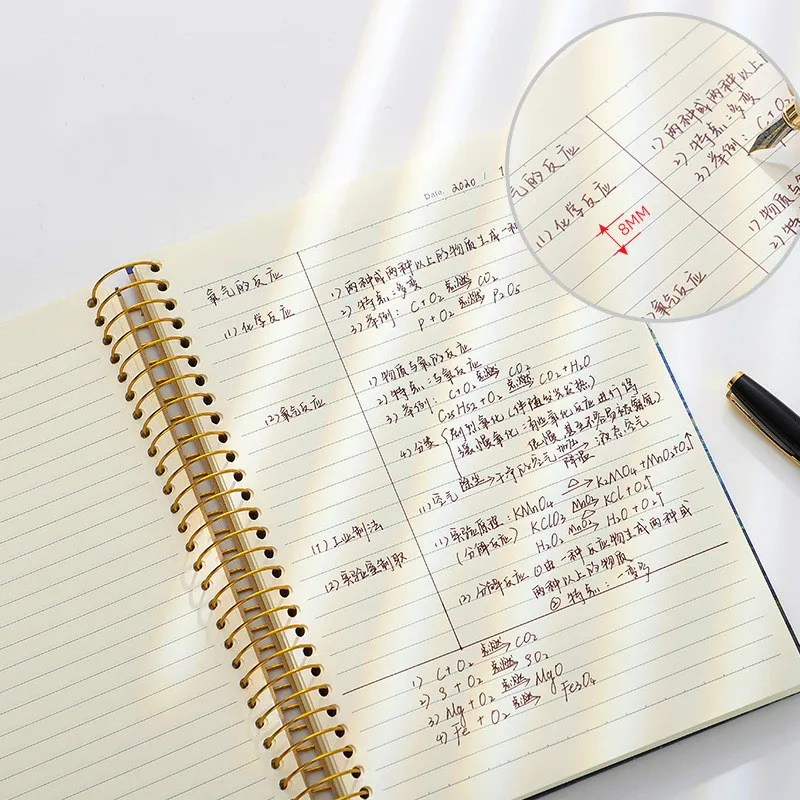 Date. 2020 / 1
氧气的反应
(1) 化学反应
1) 两种或两种以上的物质生成一种
2) 特点：多变一
3) 举例：C+O₂ 点燃→ CO₂
P+O₂ 点燃→ P₂O₅
(2) 氧气反应
1) 物质与氧的反应
2) 特点：与氧反应
3) 举例：C+O₂ 点燃→ CO₂
C₂₅H₅₂+O₂ 点燃→ CO₂+H₂O
4) 分类 剧烈氧化（伴随发光发热）
缓慢氧化：有些氧化反应进行得
很慢 甚至不容易被察觉
(1) 工业制法
(1) 空气 除尘→干净的空气 加压 降温→液态空气
(2) 实验室制取
(1) 实验原理：KMnO₄ △→ K₂MO₄+MnO₂+O₂↑
(分解反应) KClO₃ MnO₂ △→ KCl+O₂↑
H₂O₂ MnO₂→ H₂O+O₂↑
(2) 分解反应 ①由一种反应物生成两种或
两种以上的物质
② 特点：一变多
1) C+O₂ 点燃→ CO₂
2) S+O₂ 点燃→ SO₂
3) Mg+O₂ 点燃→ MgO
4) Fe+O₂ 点燃→ Fe₃O₄
气的反应
(1) 化学反应
8MM
1) 两种或两种以上
2) 特点：多变
3) 举例：C+O₂
1) 物质与
2) 特
氧气反应